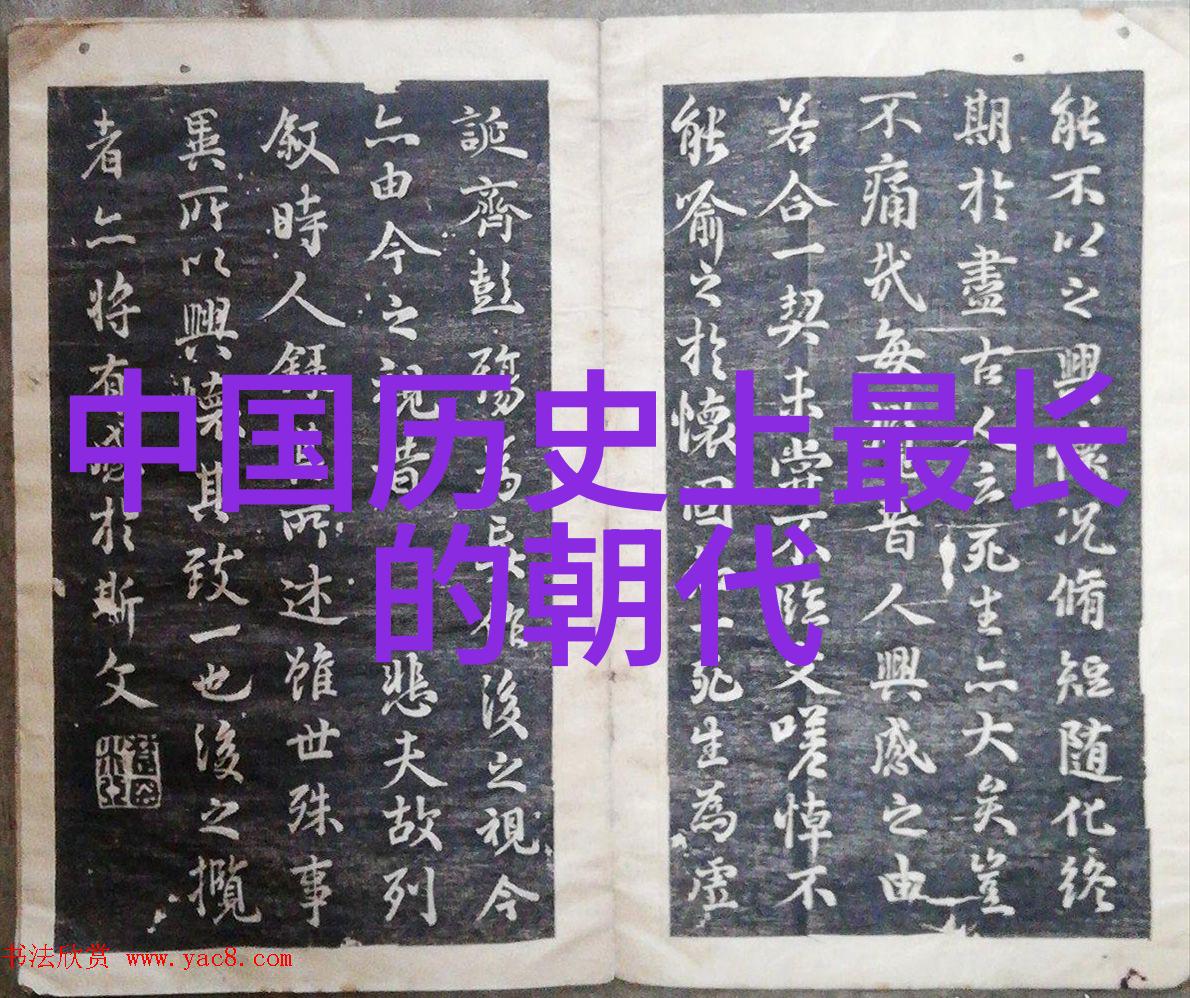 中国历史上最长
的朝代
能不以之興懷況脩短随化終
期於盡古人云死生亦大矣豈
不痛哉每攬昔人興感之由
若合一契未嘗不臨文嗟悼不
能喻之於懷固一死生為虛
誕齊彭殤為妄作後之視今
亦由今之視昔悲夫故列
叙時人錄其所述雖世殊事
異所以興懷其致一也後之攬
者亦將有感於斯文
书法欣赏 www.yac8.com